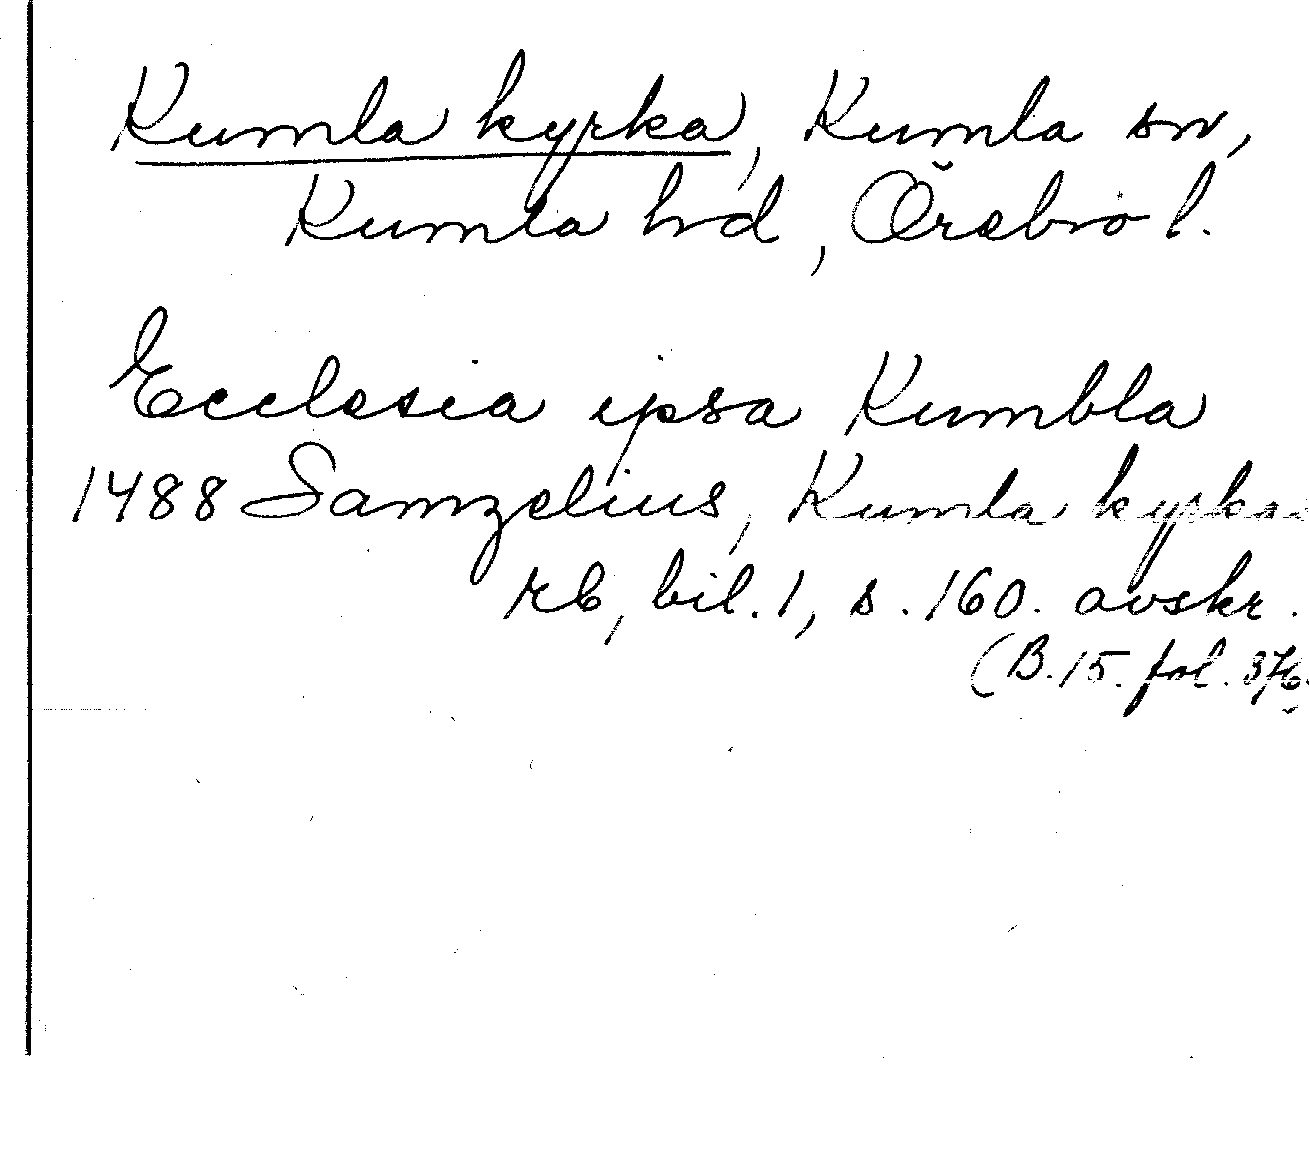 Kumla kyrka, Kumla sn,
Kumla hd, Örebro l.
Ecclesia ipsa Kumbla
1488 Samzelius, Kumla kyrkas
rb, bil. 1, s. 160. avskr.
(B. 15. fol. 376.